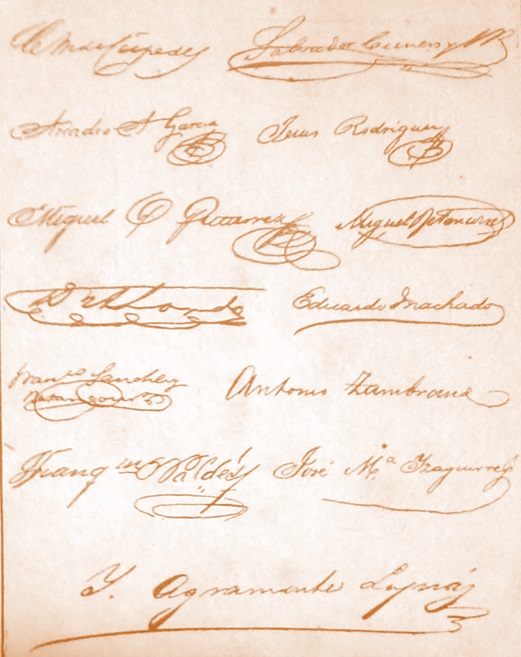 C. M. de Céspedes Salvador Cisneros y B.
Arcadio S. García Jesus Rodriguez
Miguel G. Gutierrez Miguel Betancourt
Eduardo Machado
Franco Sanchez Antonio Zambrana
Betancourt
Tranqno Valdés José Ma Izaguirre
Y. Agramonte Loynáz